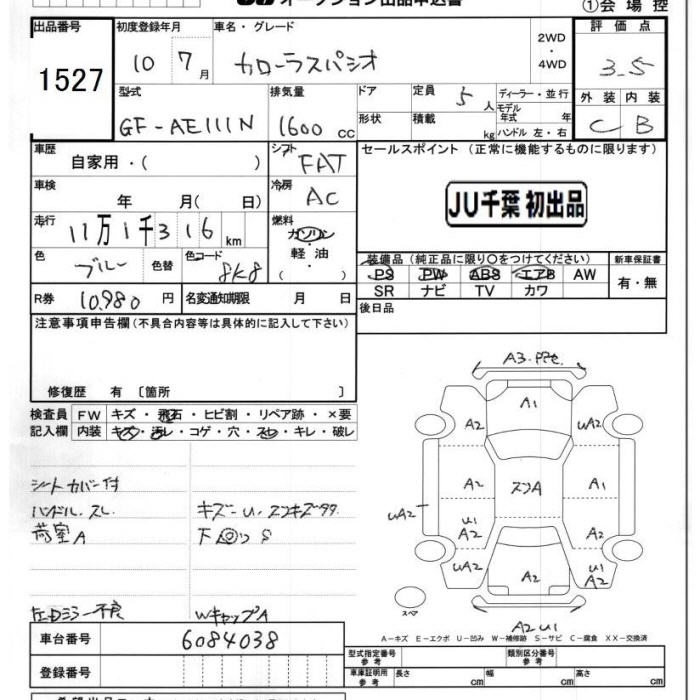 オークション出品申込書
①会場控
出品番号
1527
初度登録年月
10 7月
車名・グレード
カローラスパシオ
2WD
・
4WD
評価点
3.5
外装 内装
C B
型式
GF-AE111N
排気量
1600 cc
ドア
形状
定員
5人
積載
kg
ディーラー・並行
モデル年式 年
ハンドル 左・右
車歴
自家用・( )
シフト
FAT
セールスポイント (正常に機能するものに限ります)
JU千葉 初出品
車検
年 月( 日)
冷房
AC
走行
11万1千316km
燃料
ガソリン
・
軽・油
・
( )
色
ブルー
色替
色コード
8K8
装備品(純正品に限り○をつけてください)
PS PW ABS エアB AW
SR ナビ TV カワ
新車保証書
有・無
R券
10,980円
名変通知期限 月 日
後日品
注意事項申告欄(不具合内容等は具体的に記入して下さい)
修復歴 有〔箇所 〕
検査員記入欄
FW キズ・飛石・ヒビ割・リペア跡・×要
内装 キズ・汚レ・コゲ・穴・スレ・キレ・破レ
シートカバー付
ハンドル、スレ
荷室A
キズ-U、スンキズ99
下回リS
W キャップA
A3
A1
A2
UA2
A2
スンA
A1
UA2
U1
A2
A2
UA2
A2
U1
A2
スペア
A2U1
A-キズ E-エクボ U-凹み W-補修跡 S-サビ C-腐食 XX-交換済
車台番号
6084038
登録番号
型式指定番号
参考
類別区分番号
参考
車庫証明用
参考
長さ cm
幅 cm
高さ cm